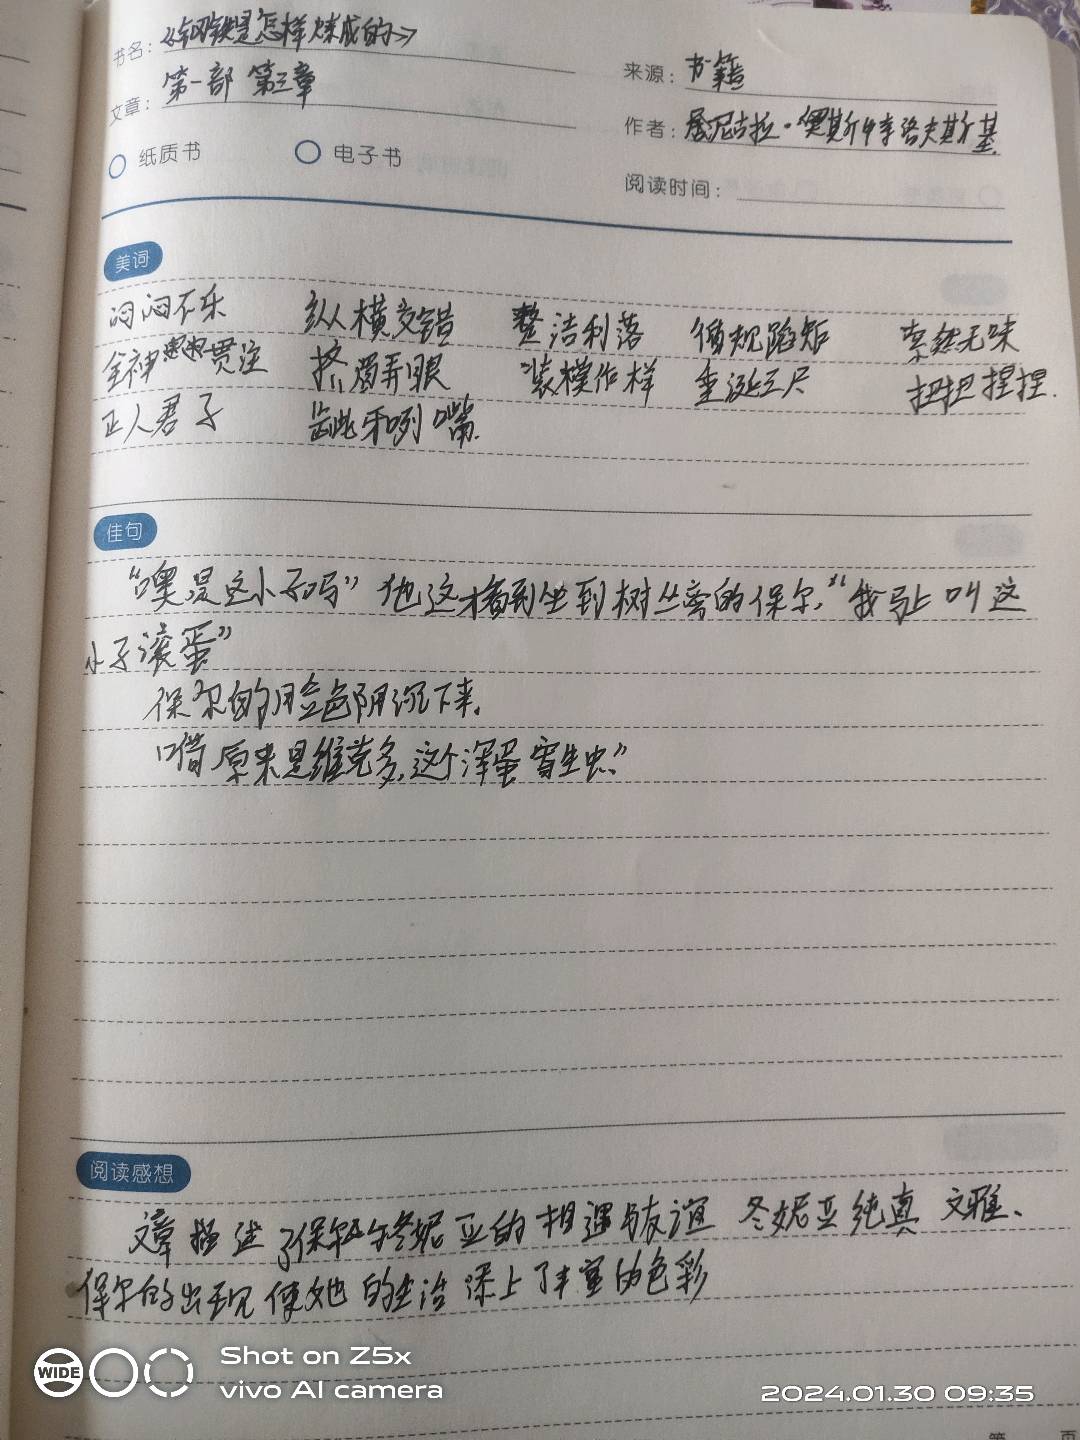 书名：《钢铁是怎样炼成的》
来源：书籍
文章：第一部 第三章
作者：尼古拉·奥斯特洛夫斯基
纸质书 电子书
阅读时间：
美词
闷闷不乐 纵横交错 整洁利落 循规蹈矩 索然无味
全神贯注 挤眉弄眼 装模作样 垂涎三尺 扭扭捏捏.
正人君子 龇牙咧嘴.
佳句
“噢是这小子吗”他这才看到坐到树丛旁的保尔,“我马上叫这
小子滚蛋”
保尔的脸色阴沉下来.
“喏原来是维克多,这个浑蛋寄生虫.”
阅读感想
文章描述了保尔与冬妮亚的相遇与友谊 冬妮亚纯真 文雅、
保尔的出现使她的生活添上了丰富的色彩
WIDE
Shot on Z5x
vivo AI camera
2024.01.30 09:35
第 页